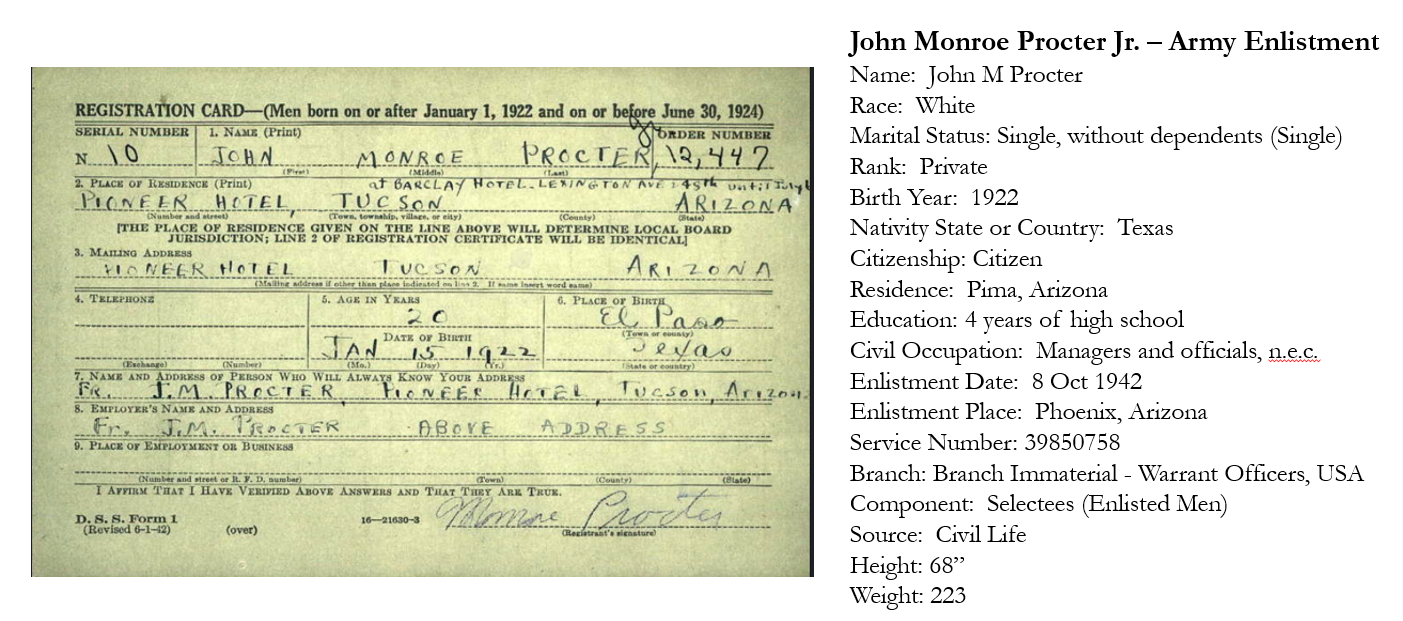 REGISTRATION CARD—(Men born on or after January 1, 1922 and on or before June 30, 1924)
SERIAL NUMBER 1. NAME (Print) ORDER NUMBER
N 10 JOHN MONROE PROCTER 12,447
(First) (Middle) (Last)
2. PLACE OF RESIDENCE (Print) at BARCLAY HOTEL - LEXINGTON AVE & 48th until
PIONEER HOTEL, TUCSON ARIZONA
(Number and street) (Town, township, village, or city) (County) (State)
[THE PLACE OF RESIDENCE GIVEN ON THE LINE ABOVE WILL DETERMINE LOCAL BOARD
JURISDICTION; LINE 2 OF REGISTRATION CERTIFICATE WILL BE IDENTICAL]
3. MAILING ADDRESS
PIONEER HOTEL TUCSON ARIZONA
(Mailing address if other than place indicated on line 2. If same insert word same)
4. TELEPHONE 5. AGE IN YEARS 6. PLACE OF BIRTH
20 El Paso
DATE OF BIRTH (Town or county)
JAN 15 1922 Texas
(Exchange) (Number) (Mo.) (Day) (Yr.) (State or country)
7. NAME AND ADDRESS OF PERSON WHO WILL ALWAYS KNOW YOUR ADDRESS
FR. J.M. PROCTER PIONEER HOTEL, Tucson, Arizon
8. EMPLOYER'S NAME AND ADDRESS
Fr. J.M. PROCTER ABOVE ADDRESS
9. PLACE OF EMPLOYMENT OR BUSINESS
(Number and street or R. F. D. number) (Town) (County) (State)
I AFFIRM THAT I HAVE VERIFIED ABOVE ANSWERS AND THAT THEY ARE TRUE.
D. S. S. Form 1 16—21630-3 Monroe Procter
(Revised 6-1-42) (over) (Registrant's signature)
John Monroe Procter Jr. – Army Enlistment
Name: John M Procter
Race: White
Marital Status: Single, without dependents (Single)
Rank: Private
Birth Year: 1922
Nativity State or Country: Texas
Citizenship: Citizen
Residence: Pima, Arizona
Education: 4 years of high school
Civil Occupation: Managers and officials, n.e.c.
Enlistment Date: 8 Oct 1942
Enlistment Place: Phoenix, Arizona
Service Number: 39850758
Branch: Branch Immaterial - Warrant Officers, USA
Component: Selectees (Enlisted Men)
Source: Civil Life
Height: 68”
Weight: 223